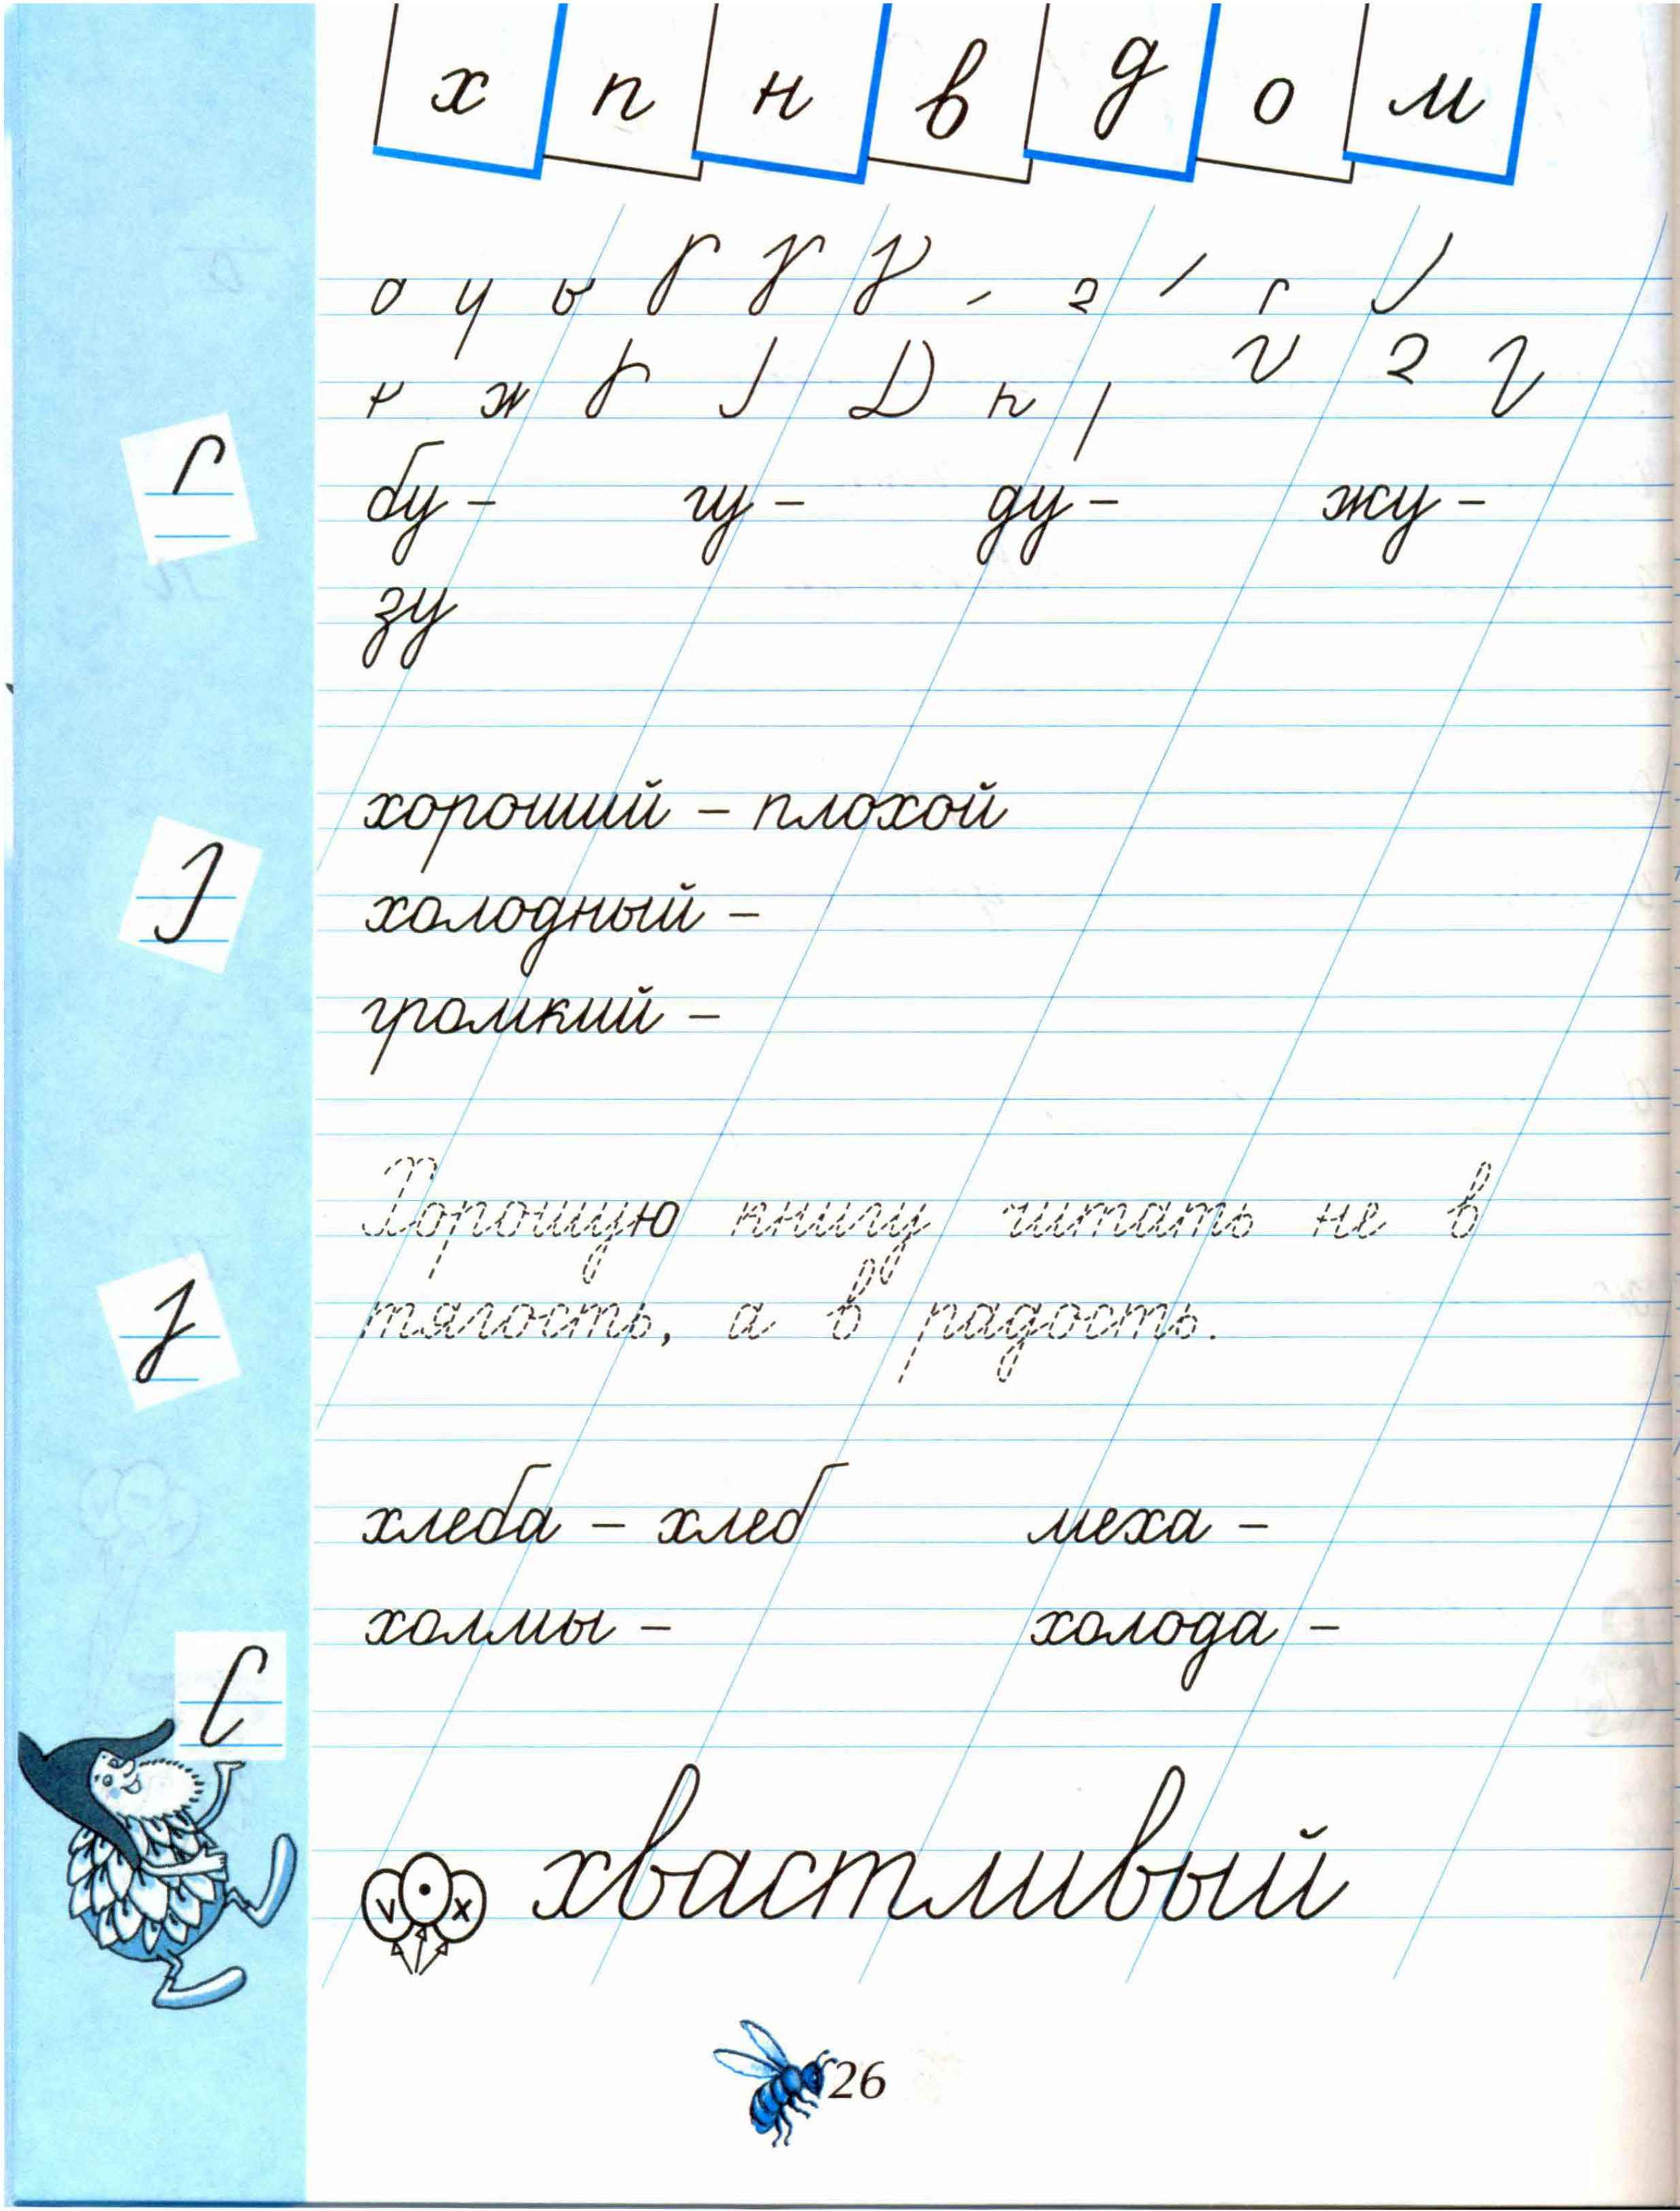 х п н в д о м
бу – гу – ду – жу –
зу
хороший – плохой
холодный –
громкий –
Хорошую книгу читать не в
тягость, а в радость.
хлеба – хлеб меха –
холмы – холода –
v • x хвастливый
26